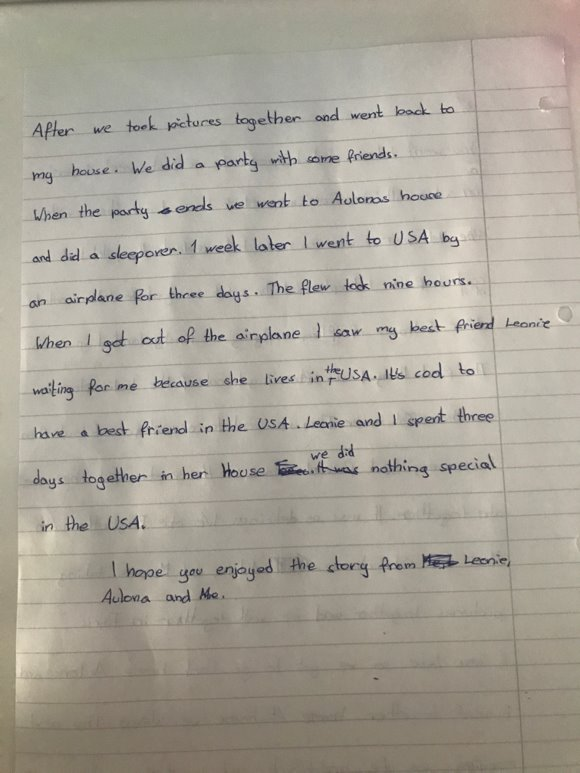 After we took pictures together and went back to
my house. We did a party with some friends.
When the party ends we went to Aulonas house
and did a sleepover. 1 week later I went to USA by
an airplane for three days. The flew took nine hours.
When I got out of the airplane I saw my best friend Leonie
waiting for me because she lives in the USA. It's cool to
have a best friend in the USA. Leonie and I spent three
days together in her House we did nothing special
in the USA.
I hope you enjoyed the story from Leonie,
Aulona and Me.